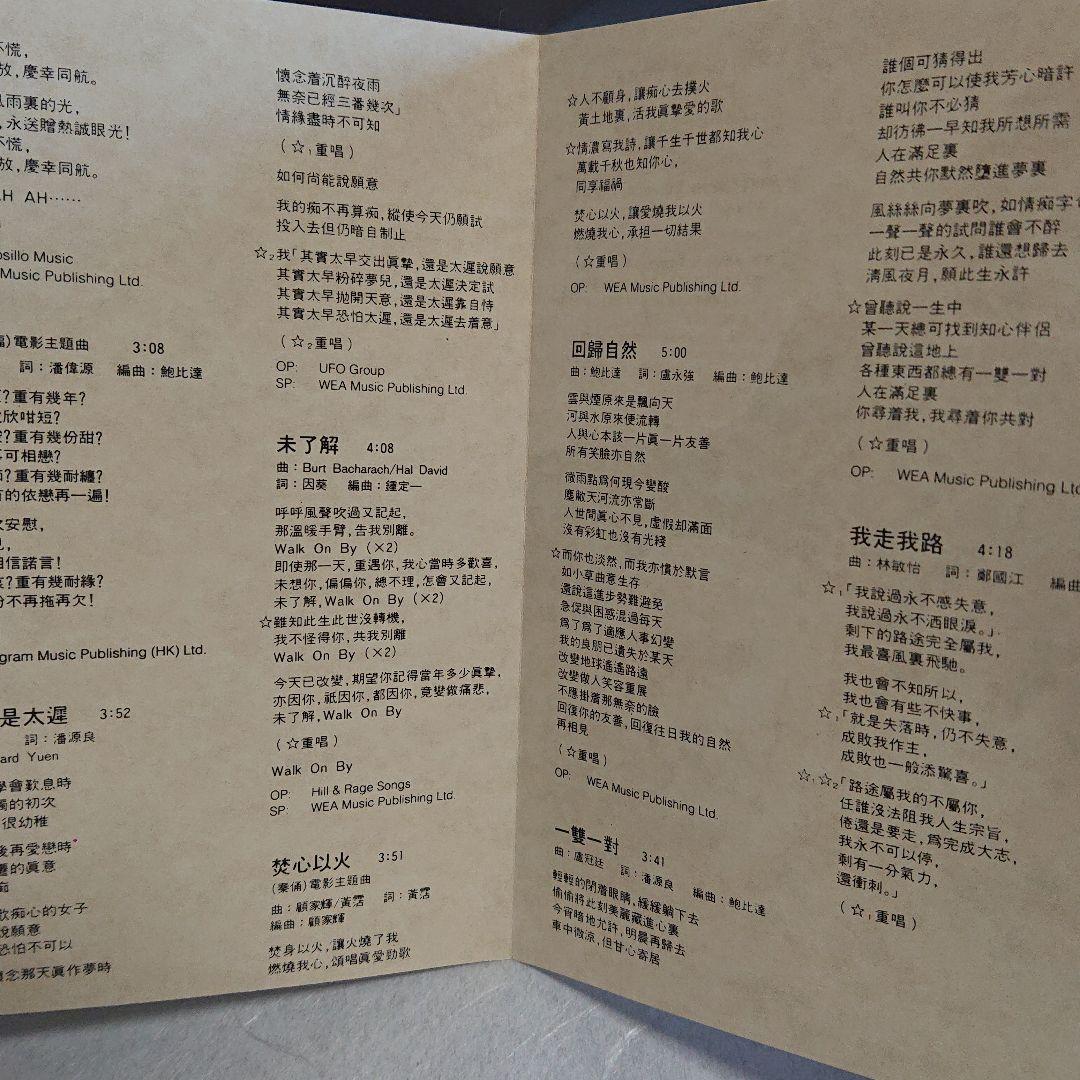 不慌,
放,慶幸同航。
風雨裏的光,
,永送贈熱誠眼光!
不慌,
放,慶幸同航。
AH AH……
osillo Music
Music Publishing Ltd.
電影主題曲 3:08
詞:潘偉源 編曲:鮑比達
?重有幾年?
欣咁短?
?重有幾份甜?
可相戀?
?重有幾耐纏?
有的依戀再一遍!
安慰,
見,
相信諾言!
?重有幾耐緣?
份不再拖再欠!
gram Music Publishing (HK) Ltd.
是太遲 3:52
詞:潘源良
ard Yuen
學會歎息時
的初次
很幼稚
後再愛戀時
的眞意
痴心的女子
說願意
恐怕不可以
懷念那天眞作夢時
懷念着沉醉夜雨
無奈已經三番幾次」
情緣盡時不可知
(☆₁重唱)
如何尚能說願意
我的痴不再算痴,縱使今天仍願試
投入去但仍暗自制止
☆₂我「其實太早交出眞摯,還是太遲說願意
其實太早粉碎夢兒,還是太遲決定試
其實太早拋開天意,還是太遲靠自恃
其實太早恐怕太遲,還是太遲去着意」
(☆₂重唱)
OP: UFO Group
SP: WEA Music Publishing Ltd.
未了解 4:08
曲:Burt Bacharach/Hal David
詞:因葵 編曲:鍾定一
呼呼風聲吹過又記起,
那溫暖手臂,告我別離。
Walk On By (×2)
即使那一天,重遇你,我心當時多歡喜,
未想你,偏偏你,總不理,怎會又記起,
未了解,Walk On By (×2)
☆雖知此生此世沒轉機,
我不怪得你,共我別離
Walk On By (×2)
今天已改變,期望你記得當年多少眞摯,
亦因你,祇因你,都因你,竟變做痛悲,
未了解,Walk On By
(☆重唱)
Walk On By
OP: Hill & Rage Songs
SP: WEA Music Publishing Ltd.
焚心以火 3:51
(秦俑)電影主題曲
曲:顧家輝/黃霑 詞:黃霑
編曲:顧家輝
焚身以火,讓火燒了我
燃燒我心,頌唱眞愛勁歌
☆人不顧身,讓痴心去撲火
黃土地裏,活我眞摯愛的歌
☆情濃寫我詩,讓千生千世都知我心
萬載千秋也知你心,
同享福禍
焚心以火,讓愛燒我以火
燃燒我心,承担一切結果
(☆重唱)
OP: WEA Music Publishing Ltd.
回歸自然 5:00
曲:鮑比達 詞:盧永強 編曲:鮑比達
雲與煙原來是飄向天
河與水原來便流轉
人與心本該一片眞一片友善
所有笑臉亦自然
微雨點爲何現今變酸
塵敝天河流亦常斷
人世間眞心不見,虛假却滿面
沒有彩虹也沒有光綫
☆而你也淡然,而我亦慣於默言
如小草曲意生存
還說這進步勢難避免
急促與困惑混過每天
爲了爲了適應人事幻變
我的良朋已遺失於某天
改變地球遙遙路遠
改變做人笑容重展
不應掛着那無奈的臉
回復你的友善,回復往日我的自然
再相見
(☆重唱)
OP: WEA Music Publishing Ltd.
一雙一對 3:41
曲:盧冠廷 詞:潘源良 編曲:鮑比達
輕輕的閉着眼睛,緩緩躺下去
偷偷將此刻美麗藏進心裏
今宵暗地允許,明晨再歸去
車中微涼,但甘心寄居
誰個可猜得出
你怎麼可以使我芳心暗許
誰叫你不必猜
却彷彿一早知我所想所需
人在滿足裏
自然共你默然墮進夢裏
風絲絲向夢裏吹,如情痴字
一聲一聲的試問誰會不醉
此刻已是永久,誰還想歸去
淸風夜月,願此生永許
☆曾聽說一生中
某一天總可找到知心伴侶
曾聽說這地上
各種東西都總有一雙一對
人在滿足裏
你尋着我,我尋着你共對
(☆重唱)
OP: WEA Music Publishing Ltd
我走我路 4:18
曲:林敏怡 詞:鄭國江 編曲
☆₁「我說過永不感失意,
我說過永不洒眼淚。」
剩下的路途完全屬我,
我最喜風裏飛馳。
我也會不知所以,
我也會有些不快事,
☆₁「就是失落時,仍不失意,
成敗我作主,
成敗也一般添驚喜。」
☆₁☆₂「路途屬我的不屬你,
任誰沒法阻我人生宗旨,
倦還是要走,爲完成大志,
我永不可以停,
剩有一分氣力,
還衝刺。」
(☆₁重唱)